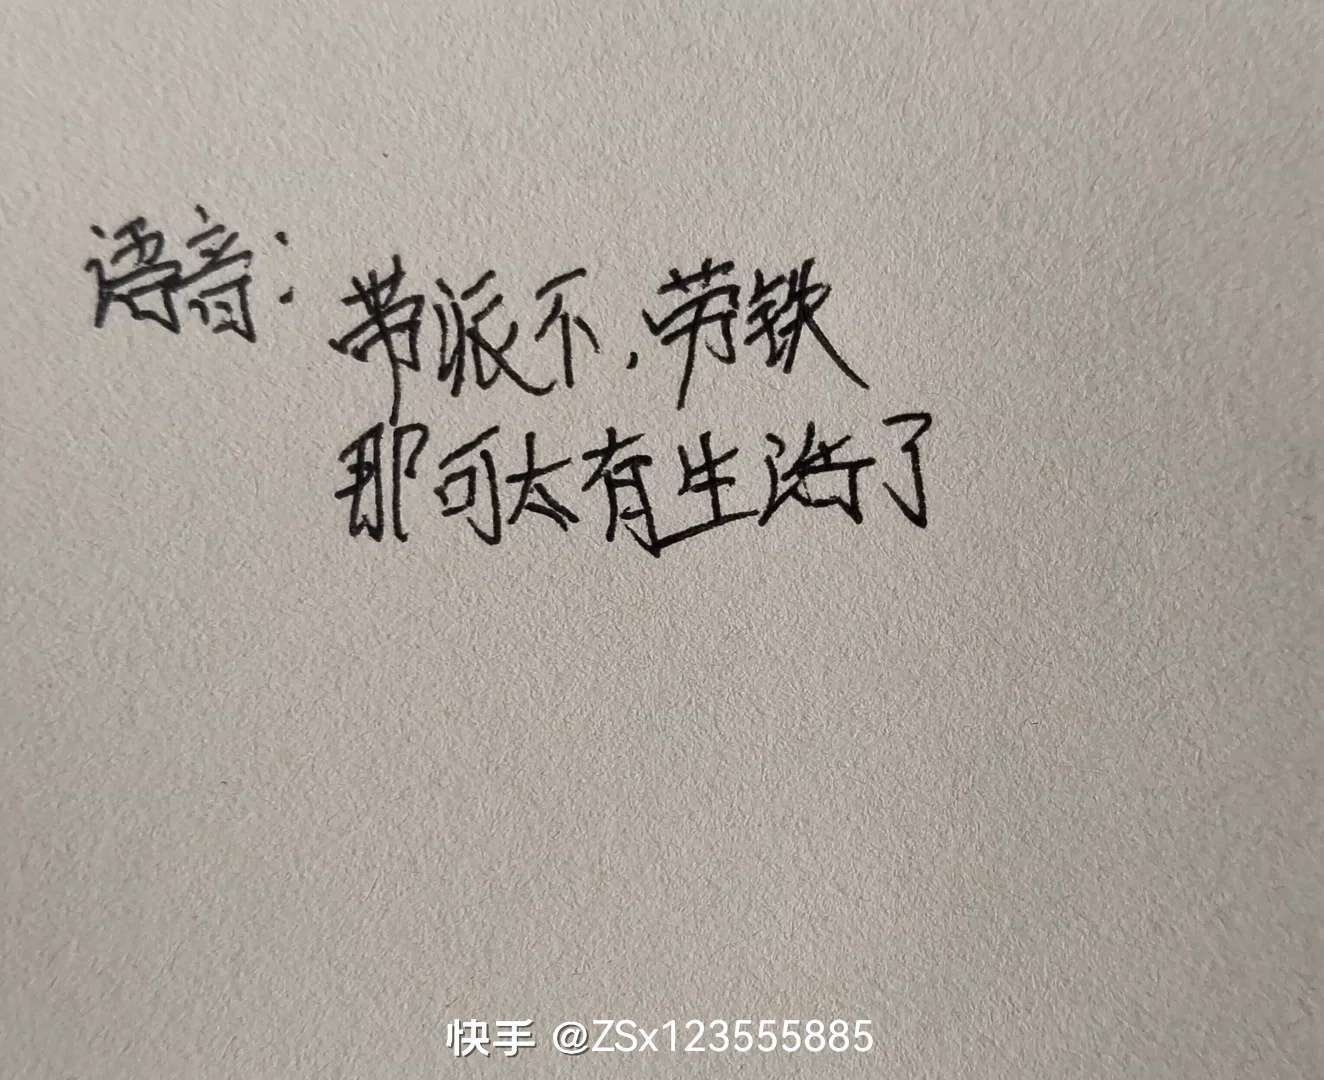 语音：带派不，劳铁
那可太有生活了
快手 @ZSx123555885